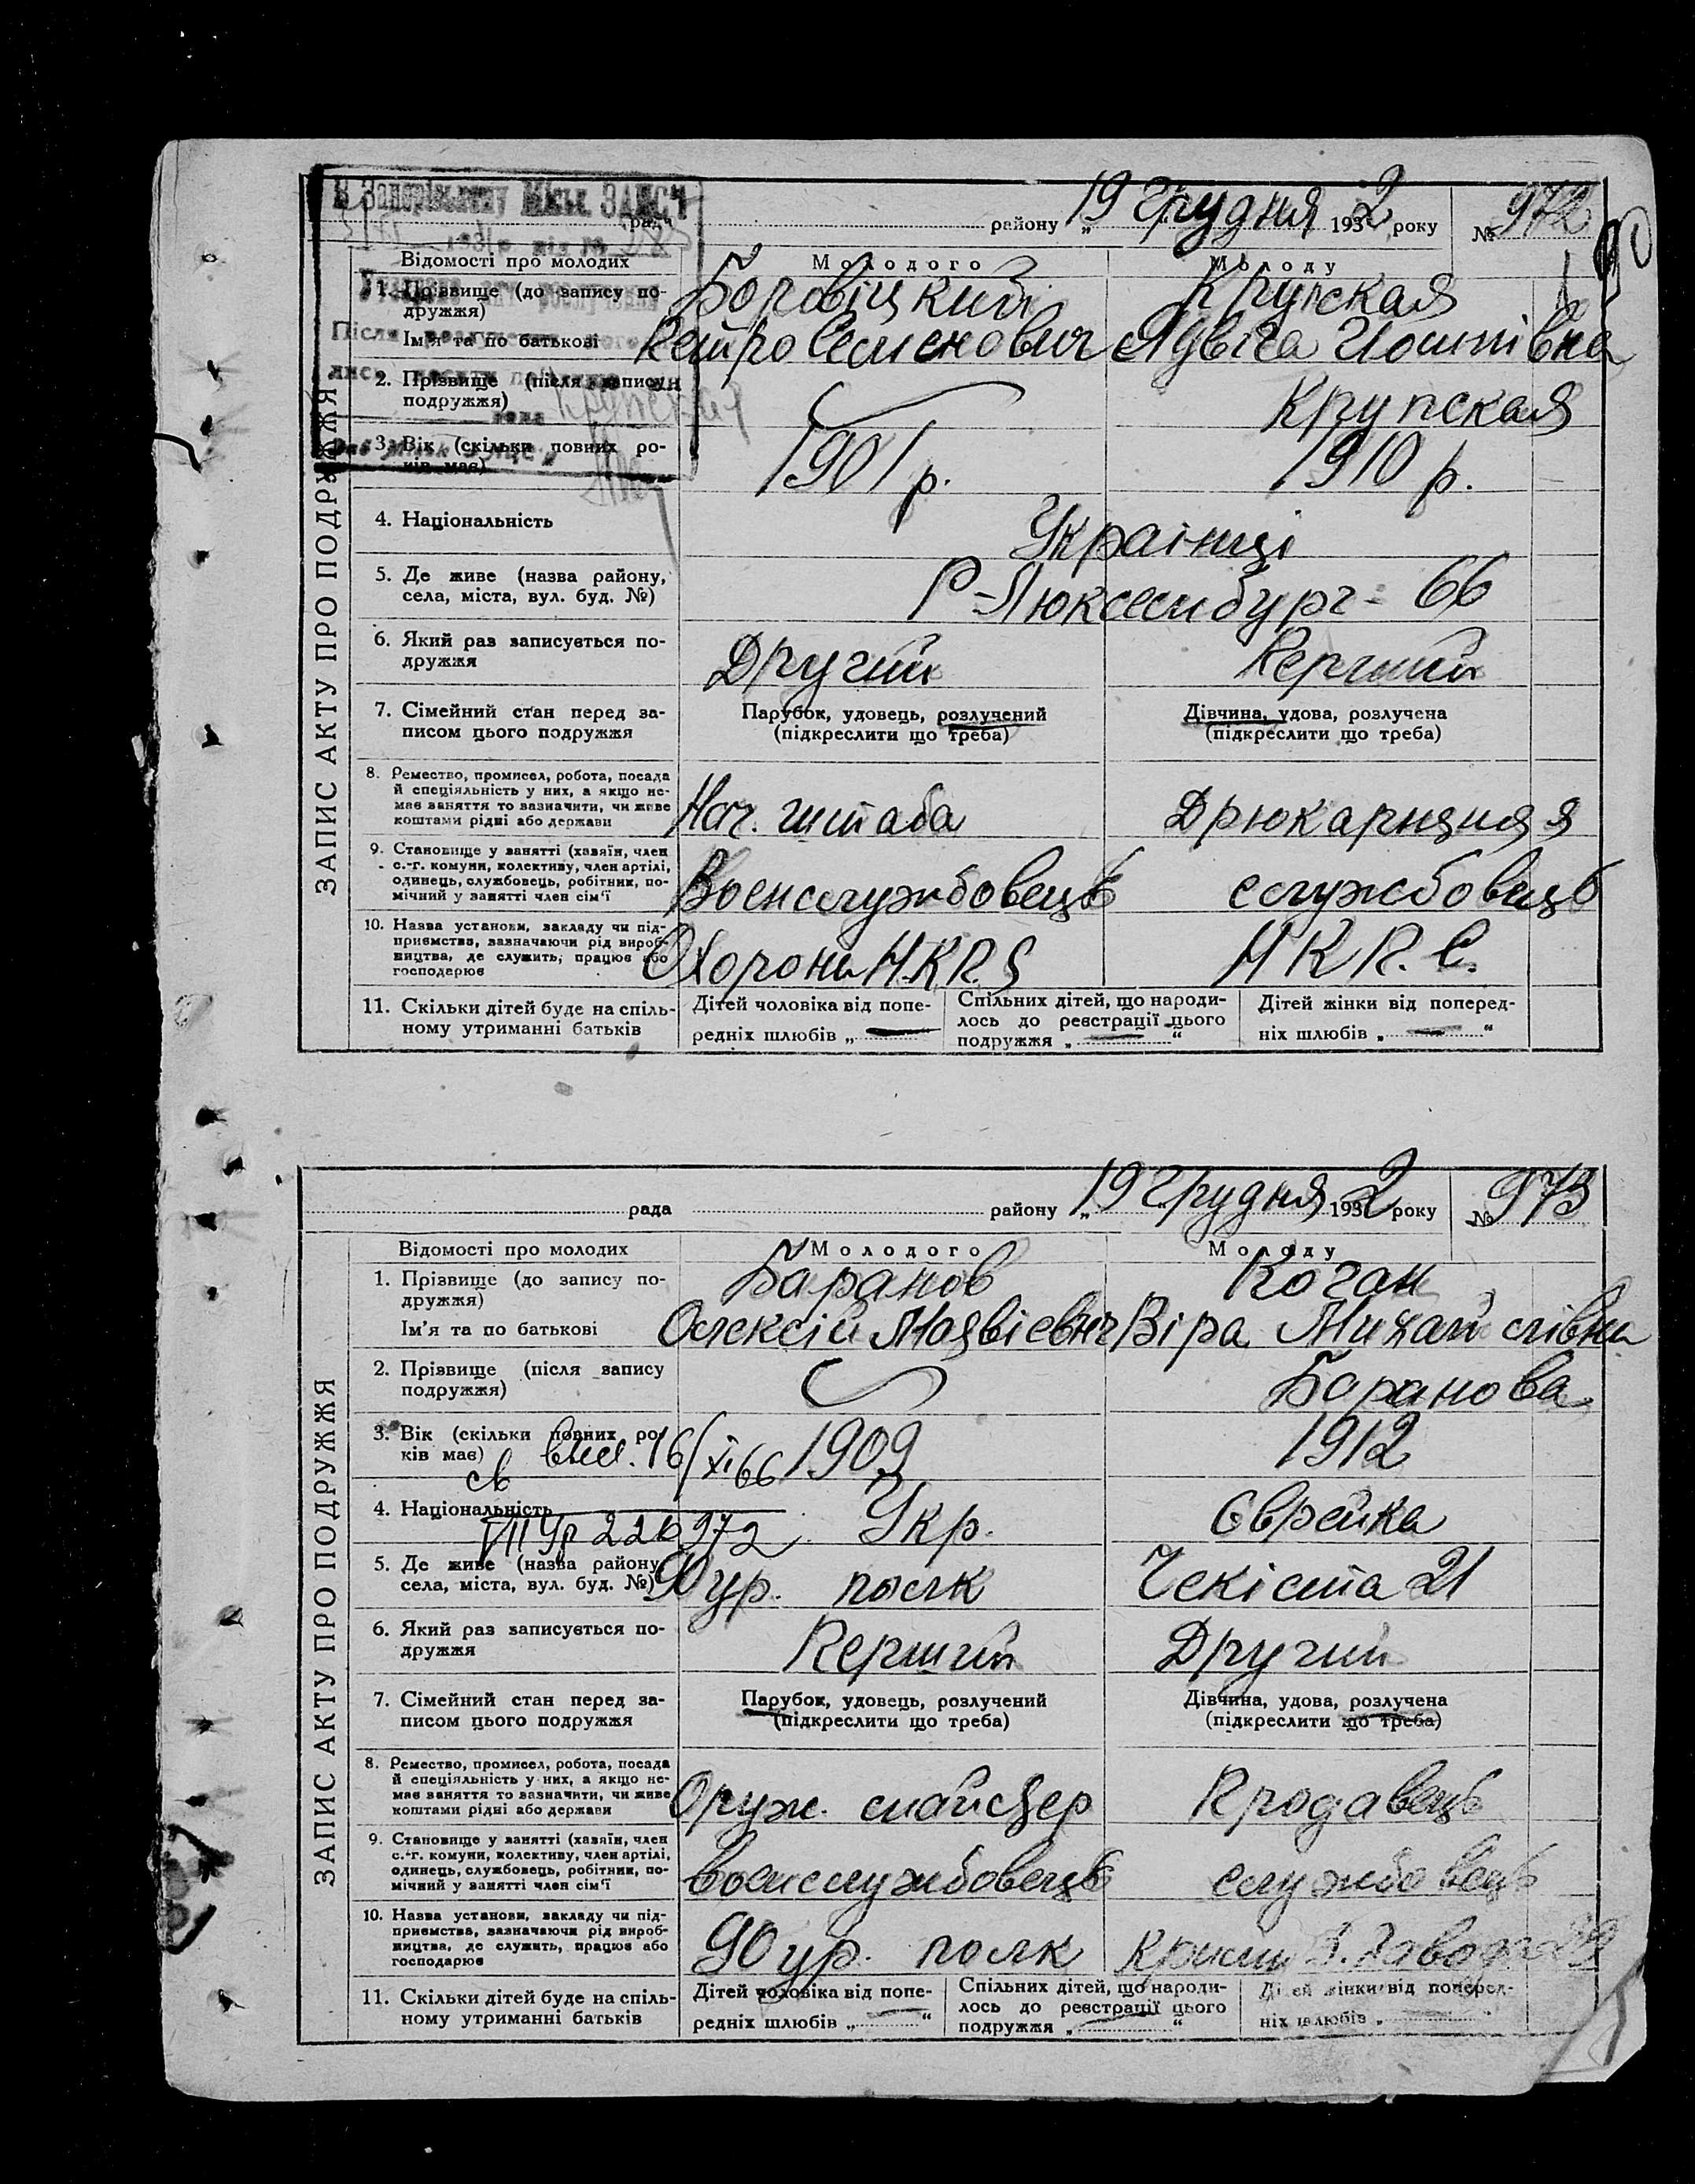 В Запорізькому Міськ. ЗАГСІ
рада району „19 Грудня 1932 року № 972
ЗАПИС АКТУ ПРО ПОДРУЖЖЯ
Відомості про молодих Молодого Молоду
1. Прізвище (до запису по-
дружжя) Боровіцкий Крупская
Ім'я та по батькові Петро Семенович Ядвіга Йосипівна
2. Прізвище (після запису
подружжя) Крупская
3. Вік (скільки повних ро-
ків має) 1901 р. 1910 р.
4. Національність Українці
5. Де живе (назва району,
села, міста, вул. буд. №) Р-Люксембург - 66
6. Який раз записується по-
дружжя Другий Перший
7. Сімейний стан перед за-
писом цього подружжя
Парубок, удовець, розлучений
(підкреслити що треба)
Дівчина, удова, розлучена
(підкреслити що треба)
8. Ремество, промисел, робота, посада
й спеціяльність у них, а якщо не-
має заняття то зазначити, чи живе
коштами рідні або держави
Нач. штаба
9. Становище у занятті (хазяїн, член
с.-г. комуни, колективу, член артілі,
одинець, службовець, робітник, по-
мічний у занятті член сім'ї
Военслужбовець службовець
10. Назва установи, закладу чи під-
приємства, зазначаючи рід вироб-
ництва, де служить, працює або
господарює
Охорони
11. Скільки дітей буде на спіль-
ному утриманні батьків
Дітей чоловіка від попе-
редніх шлюбів „ —
Спільних дітей, що народи-
лось до реєстрації цього
подружжя „ — “
Дітей жінки від поперед-
ніх шлюбів „ — “
рада району „19 Грудня 1932 року № 973
ЗАПИС АКТУ ПРО ПОДРУЖЖЯ
Відомості про молодих Молодого Молоду
1. Прізвище (до запису по-
дружжя) Баранов Коган
Ім'я та по батькові Олексій Матвієвич Віра Михайлівна
2. Прізвище (після запису
подружжя) Баранова
3. Вік (скільки повних ро-
ків має) 16/XI 66 1909 1912
4. Національність Укр. Єврейка
226972
5. Де живе (назва району,
села, міста, вул. буд. №) 90 ур. полк Чекіста 21
6. Який раз записується по-
дружжя Перший Другий
7. Сімейний стан перед за-
писом цього подружжя
Парубок, удовець, розлучений
(підкреслити що треба)
Дівчина, удова, розлучена
(підкреслити що треба)
8. Ремество, промисел, робота, посада
й спеціяльність у них, а якщо не-
має заняття то зазначити, чи живе
коштами рідні або держави
Оруж. майстер Продавець
9. Становище у занятті (хазяїн, член
с.-г. комуни, колективу, член артілі,
одинець, службовець, робітник, по-
мічний у занятті член сім'ї
военслужбовець службовець
10. Назва установи, закладу чи під-
приємства, зазначаючи рід вироб-
ництва, де служить, працює або
господарює
90 ур. полк
11. Скільки дітей буде на спіль-
ному утриманні батьків
Дітей чоловіка від попе-
редніх шлюбів „ — “
Спільних дітей, що народи-
лось до реєстрації цього
подружжя „ — “
Дітей жінки від поперед-
ніх шлюбів „